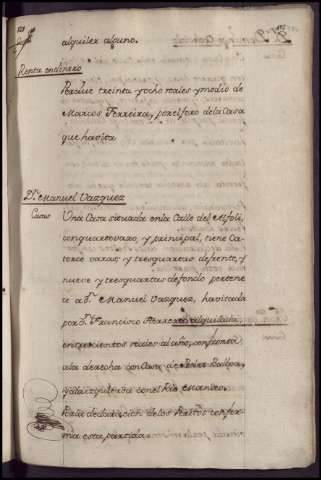 alquiler alguno.
Renta en dinero
Percive treinta y ocho reales y medio de
Marcos Ferreira, por el foro de la Casa
que havita
Dn. Manuel Vazquez
Casas
Una Casa situada en la Calle del Asfoli,
con quarto vaxo, y principal, tiene Ca-
torce varas y tres quartas de frente, y
nueve y tres quartas de fondo pertene-
ce a Dn. Manuel Vazquez, havitada
por Dn. Francisco alquilada
en reales al año, confronta
a la derecha con Casa de Pedro
y a la izquierda con el Rio
Por la declaracion de los Peritos confor-
ma esta partida